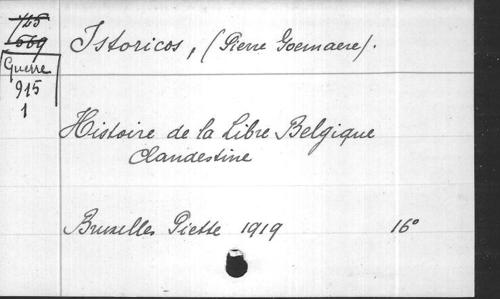 725
569
Guerre
915
1
Istoricos, (Pierre Goemaere).
Histoire de la Libre Belgique
clandestine
Bruxelles Piette 1919 16°